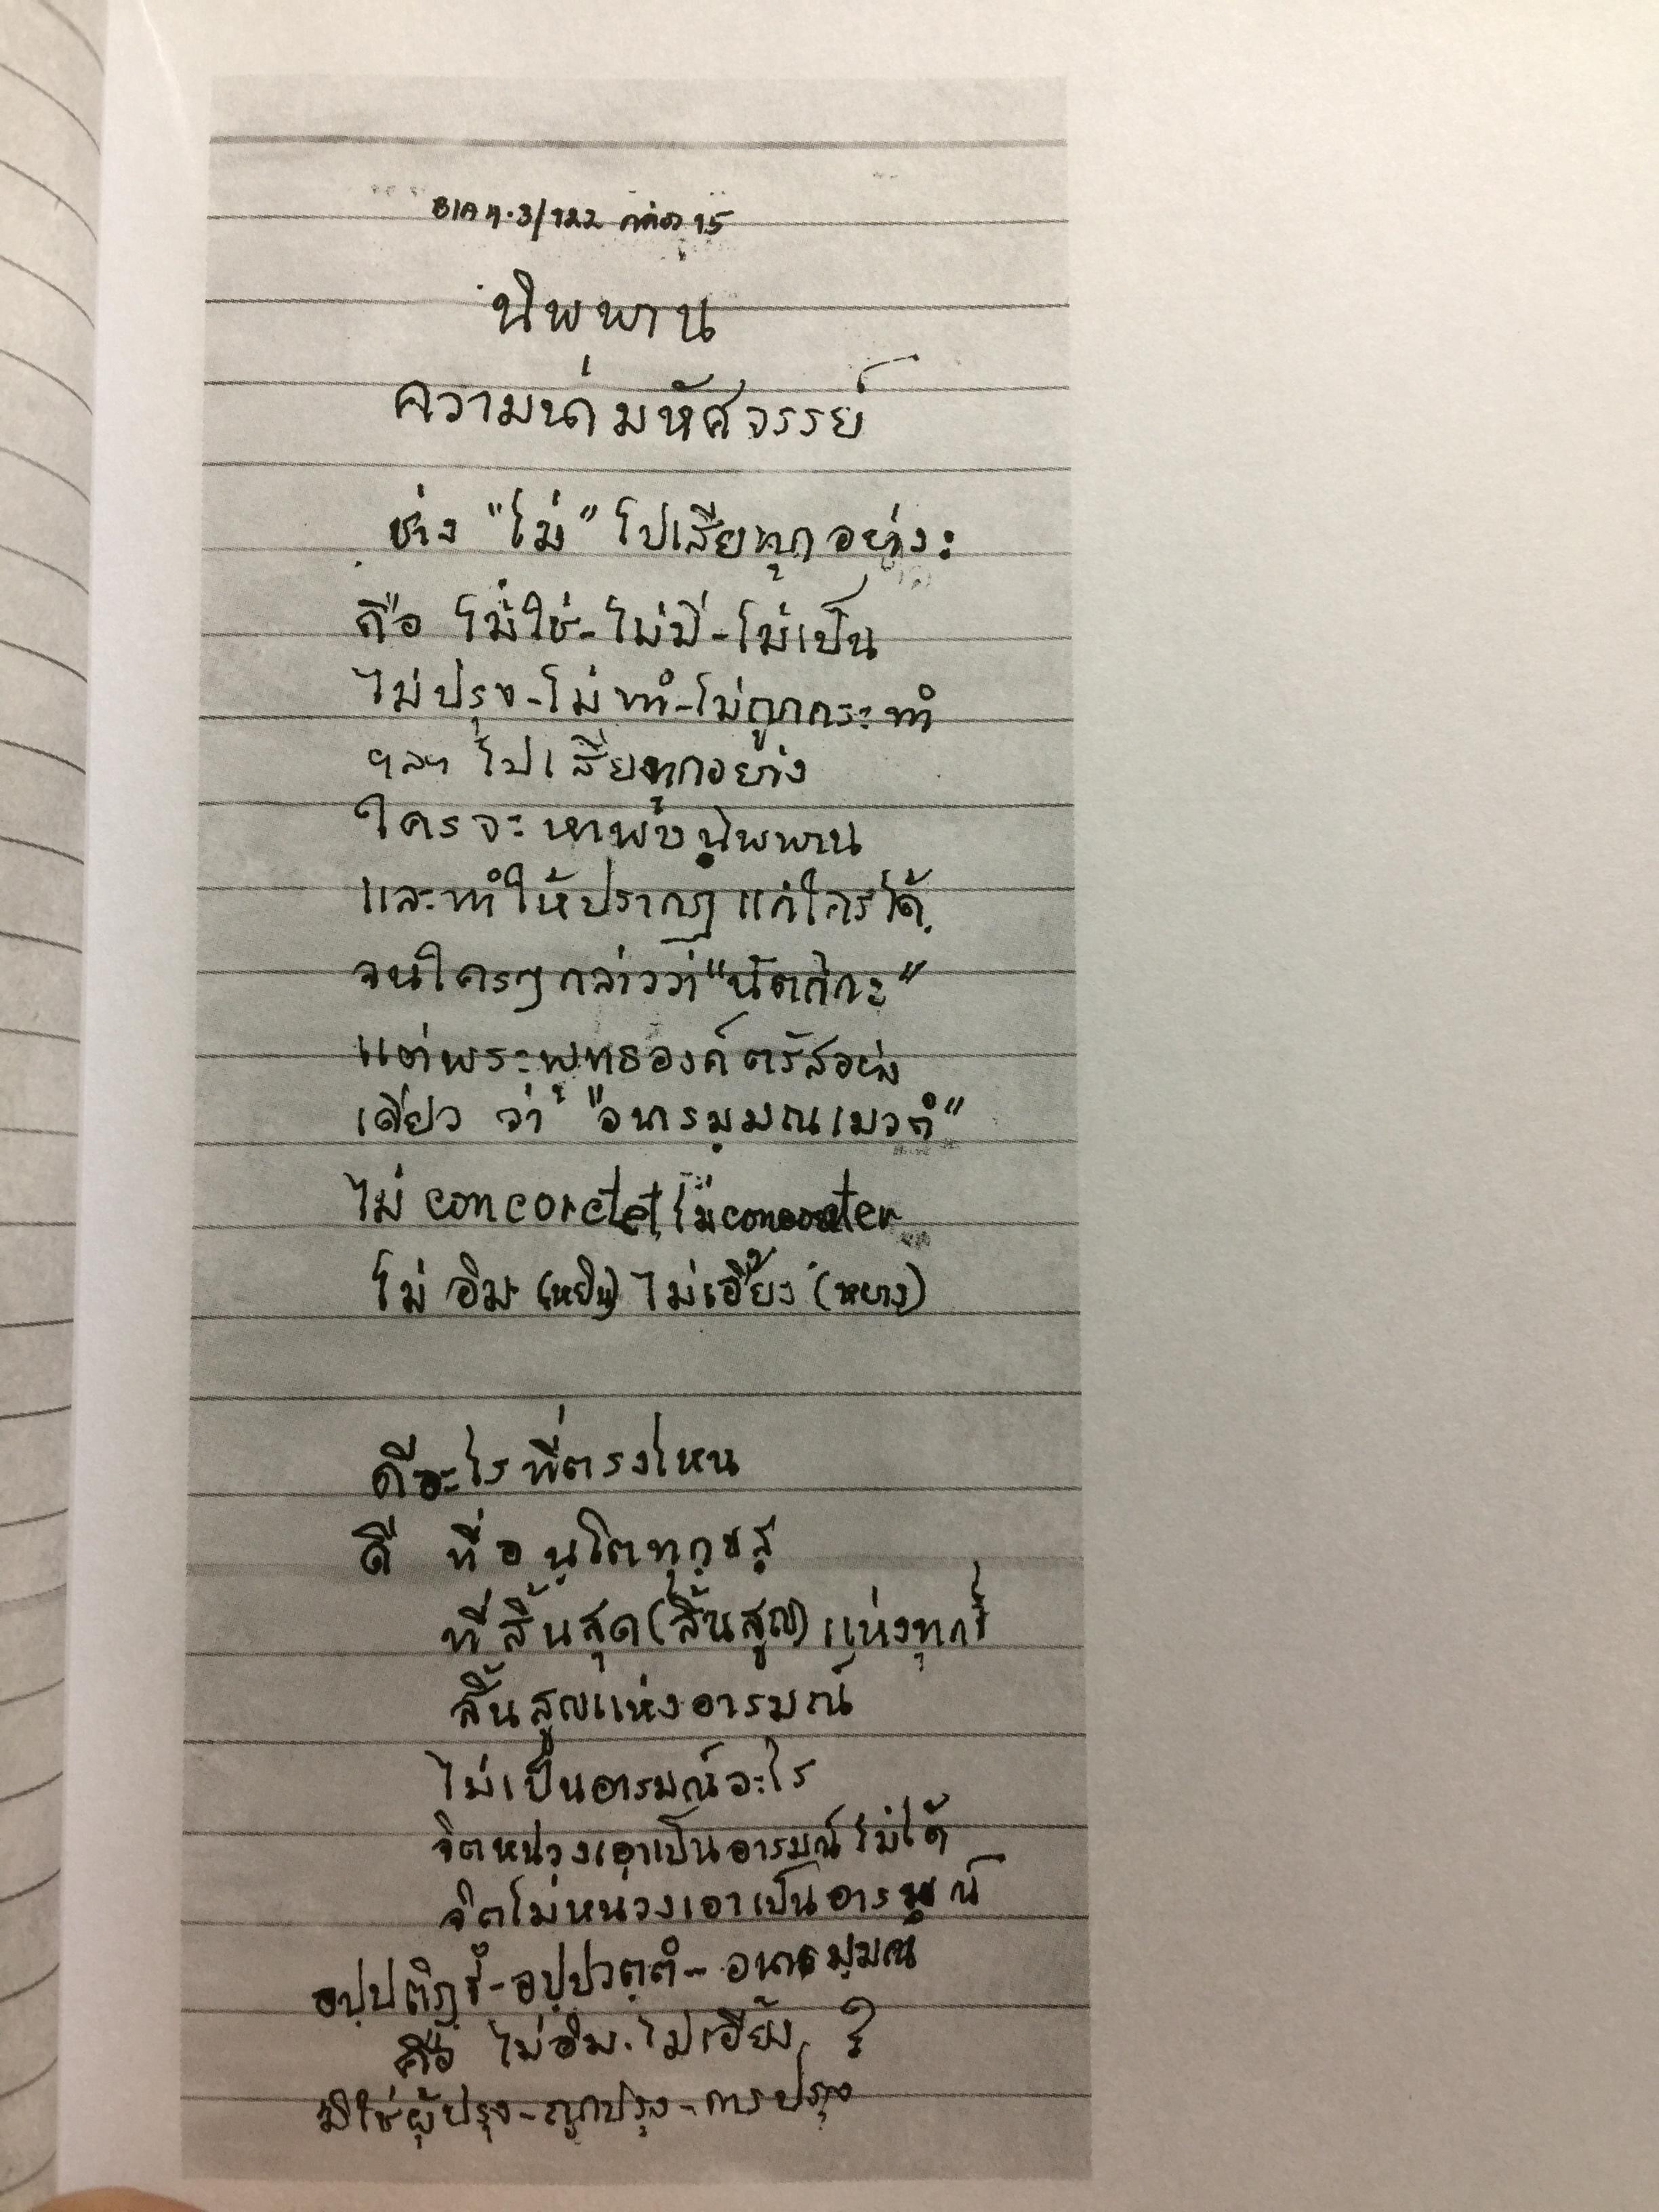 BIA ๗.3/122 กล่อง 15
นิพพาน
ความน่ามหัศจรรย์
ช่าง "ไม่" ไปเสียทุกอย่าง:
คือ ไม่ใช่-ไม่มี-ไม่เป็น
ไม่ปรุง-ไม่ทำ-ไม่ถูกกระทำ
ฯลฯ ไปเสียทุกอย่าง
ใครจะหาพบนิพพาน
และทำให้ปรากฏแก่ใครได้
จนใครๆกล่าวว่า "นัตถิกะ"
แต่พระพุทธองค์ตรัสอย่าง
เดียว ว่า "อนารมฺมณเมวตํ"
ไม่ concorctet, ไม่ concorcter
ไม่ อิม (หยิน) ไม่เอี้ยง (หยาง)
ดีอะไรที่ตรงไหน
ดี ที่อนฺโตทุกฺขสฺส
ที่สิ้นสุด (สิ้นสูญ) แห่งทุกข์
สิ้นสูญแห่งอารมณ์
ไม่เป็นอารมณ์อะไร
จิตหน่วงเอาเป็นอารมณ์ไม่ได้
จิตไม่หน่วงเอาเป็นอารมณ์
อปฺปติฏฺฐํ-อปฺปวตฺตํ-อนารมฺมณํ
คือ ไม่อิม.ไม่เอี้ยง ?
มิใช่ผู้ปรุง-ถูกปรุง-การปรุง